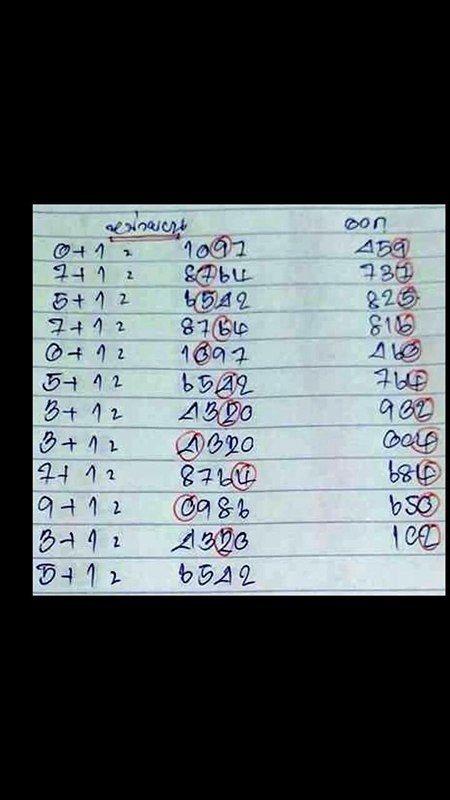 หน่วยบน ออก
0+1 = 1097 459
7+1 = 8764 737
5+1 = 6542 825
7+1 = 8764 816
0+1 = 1097 460
5+1 = 6542 764
3+1 = 4320 932
3+1 = 4320 004
7+1 = 8764 684
9+1 = 0986 650
3+1 = 4320 102
5+1 = 6542